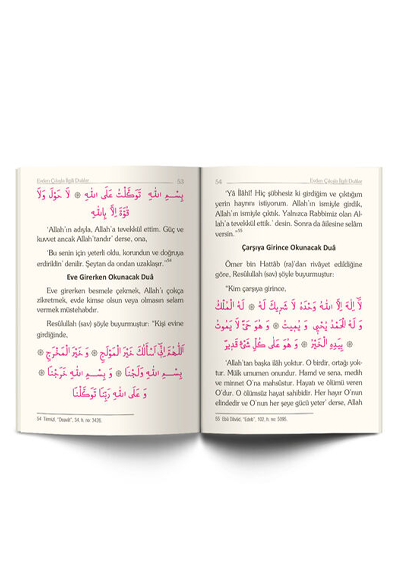 Evden Çıkışla İlgili Dualar 53
بِسْمِ اللّٰهِ تَوَكَّلْتُ عَلَى اللّٰهِ ۞ لَا حَوْلَ وَلَا
قُوَّةَ اِلَّا بِاللّٰهِ
'Allah'ın adıyla, Allah'a tevekkül ettim. Güç ve
kuvvet ancak Allah'tandır' derse, ona,
'Bu senin için yeterli oldu, korundun ve doğruya
erdirildin' denilir. Şeytan da ondan uzaklaşır."⁵⁴
Eve Girerken Okunacak Duâ
Eve girerken besmele çekmek, Allah'ı çokça
zikretmek, evde kimse olsun veya olmasın selam
vermek müstehabdır.
Resûlullah (sav) şöyle buyurmuştur: "Kişi evine
girdiğinde,
اَللّٰهُمَّ اِنِّى اَسْأَلُكَ خَيْرَ الْمَوْلَجِ ۞ وَ خَيْرَ الْمَخْرَجِ ۞
بِسْمِ اللّٰهِ وَلَجْنَا ۞ وَ بِسْمِ اللّٰهِ خَرَجْنَا ۞
وَ عَلَى اللّٰهِ رَبِّنَا تَوَكَّلْنَا
54 Tirmizî, "Deavât", 34, h. no: 3426.
54 Evden Çıkışla İlgili Dualar
'Yâ İlâhî! Hiç şübhesiz ki girdiğim ve çıktığım
yerin hayrını istiyorum. Allah'ın ismiyle girdik,
Allah'ın ismiyle çıktık. Yalnızca Rabbimiz olan Al-
lah'a tevekkül ettik.' desin. Sonra da âilesine selâm
versin."⁵⁵
Çarşıya Girince Okunacak Duâ
Ömer bin Hattâb (ra)'dan rivâyet edildiğine
göre, Resûlullah (sav) şöyle buyurmuştur:
"Kim çarşıya girince,
لَا اِلٰهَ اِلَّا اللّٰهُ وَحْدَهُ لَا شَرِيكَ لَهُ ۞ لَهُ الْمُلْكُ
وَ لَهُ الْحَمْدُ يُحْيِى وَ يُمِيتُ ۞ وَ هُوَ حَىٌّ لَا يَمُوتُ
۞ بِيَدِهِ الْخَيْرُ ۞ وَ هُوَ عَلٰى كُلِّ شَىْءٍ قَدِيرٌ
'Allah'tan başka ilâh yoktur. O birdir, ortağı yok-
tur. Mülk umumen onundur. Hamd ve sena, medih
ve minnet O'na mahsûstur. Hayatı ve ölümü veren
O'dur. O ölümsüz hayat sahibidir. Her hayır O'nun
elindedir ve O'nun her şeye gücü yeter' derse, Allah
55 Ebû Dâvûd, "Edeb", 103, h. no: 5096.